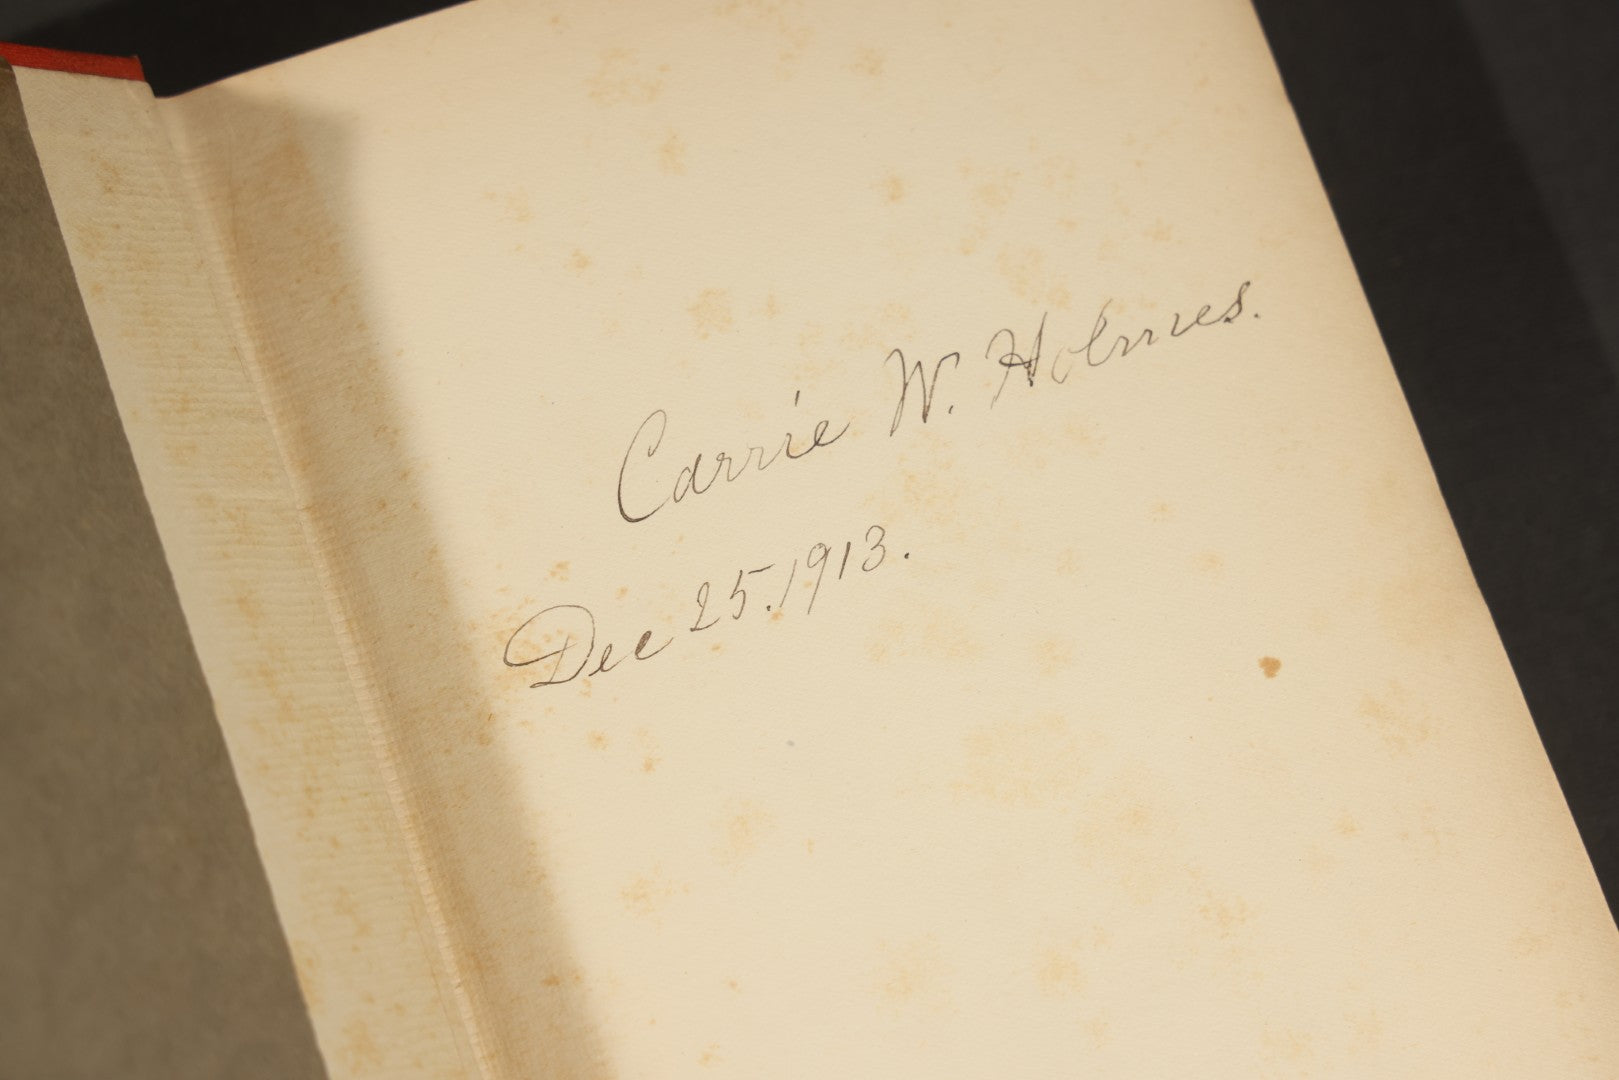 Carrie W. Holmes.
Dec 25. 1913.